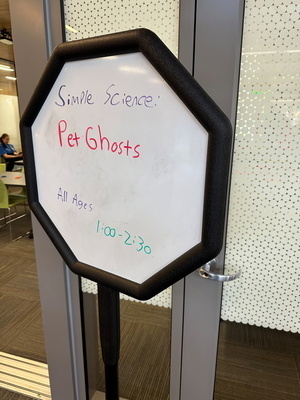 Simple Science:
Pet Ghosts
All Ages
1:00-2:30